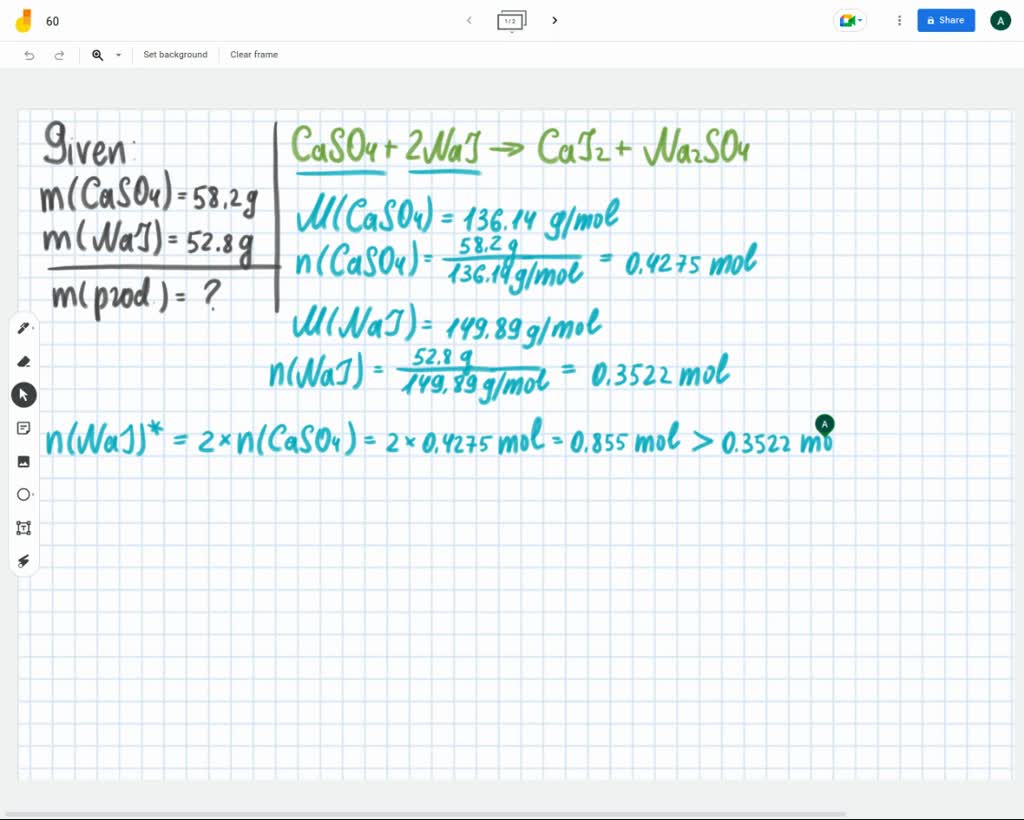 60
1/2
Share
A
Set background
Clear frame
Given:
m(CaSO₄) = 58,2 g
m(NaI) = 52.8 g
m(prod.) = ?
CaSO₄ + 2NaI → CaI₂ + Na₂SO₄
M(CaSO₄) = 136.14 g/mol
n(CaSO₄) = 58.2 g / 136.14 g/mol = 0.4275 mol
M(NaI) = 149.89 g/mol
n(NaI) = 52.8 g / 149,89 g/mol = 0.3522 mol
n(NaI)* = 2 × n(CaSO₄) = 2 × 0.4275 mol = 0.855 mol > 0.3522 mo
A
T